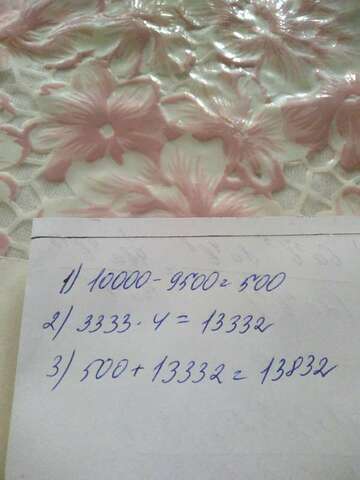 1) 10000 - 9500 = 500
2) 3333 · 4 = 13332
3) 500 + 13332 = 13832